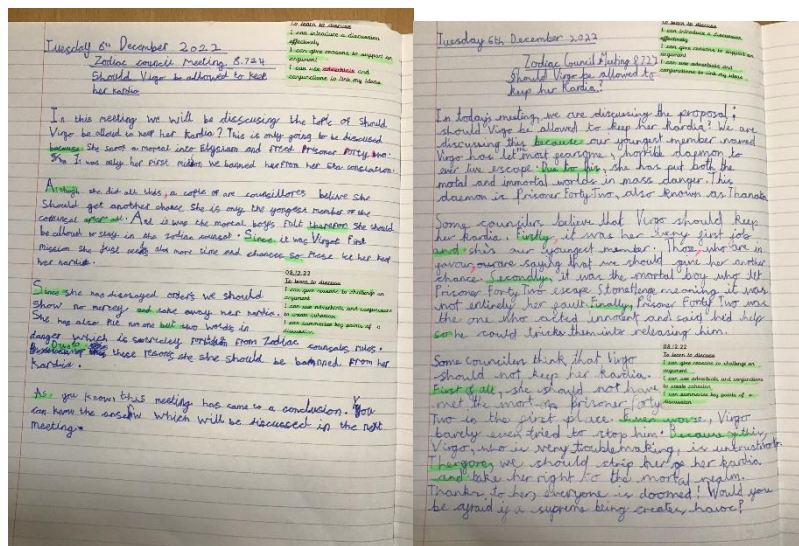 Tuesday 6th December 2022
Zodiac Council Meeting 8.724
Should Virgo be allowed to keep
her kardia
To learn to discuss
I can introduce a discussion
effectively
I can give reasons to support an
argument
I can use adverbials and
conjunctions to link my ideas
In this meeting we will be disscusing the topic of Should
Virgo be allowed to keep her kardia? This is only going to be discussed
because She a mortal into Elysium and Prisoner Forty two.
It was only her first we banned her from her Star constellation.
she did all this, a couple of councillores believe she
Should get another chance. She is only the yongest member of the
after all. it was the mortal boys therefore She should
be allowed to stay in the Zodiac council. Since it was Virgos First
mission she Just needs more time and chances so let her keep
her kardia.
08.12.22
To learn to discuss
I can give reasons to challenge an
argument
I can use adverbials and conjunctions
to create cohesion
I can summarise key points of a
discussion
Since she has disobayed orders we should
Show no mercy and take away her kardia.
She has also Put not one but two worlds in
danger which is From Zodiac rules.
these reasons she she should be banned from her
kardia.
As you know, this meeting has come to a conclusion. You
can which will be discussed in the next
meeting.
Tuesday 6th December 2022
Zodiac Council Meeting 8.727
Should Virgo be allowed to
keep her Kardia?
To learn to discuss
I can introduce a discussion
effectively
I can give reasons to support an
argument
I can use adverbials and
conjunctions to link my ideas
In today's meeting, we are discussing the proposal:
should Virgo be allowed to keep her kardia? We are
discussing this because our youngest member named
Virgo has let most fearsome, horrible daemon to
ever live escape. Due to this, she has put both the
motal and immortal worlds in mass danger. This
daemon is Prisoner Forty Two, also known as Thanatos
Some councilers believe that Virgo should keep
her kardia. Firstly, it was her very first job
and she's our youngest member. Those, who are in
favour, are saying that we should give her another
chance. Secondly, it was the mortal boy who let
Prisoner Forty Two escape Stonehenge meaning it was
not entirely her fault. Finally, Prisoner Forty Two was
the one who acted innocent and said he'd help
so he could trick them into releasing him.
Some councilers think that Virgo
should not keep her kardia.
First of all, she should not have
met the mortal or prisoner Forty
Two in the first place. Even worse, Virgo
barely even tried to stop him! Because of this,
Virgo, who is very troublemaking, is
Therefore, we should strip her of her kardia
and take her right to the mortal realm.
Thanks to her, everyone is doomed! Would you
be afraid if a supreme being creates havoc?
08.12.22
To learn to discuss
I can give reasons to challenge an
argument
I can use adverbials and conjunctions
to create cohesion
I can summarise key points of a
discussion